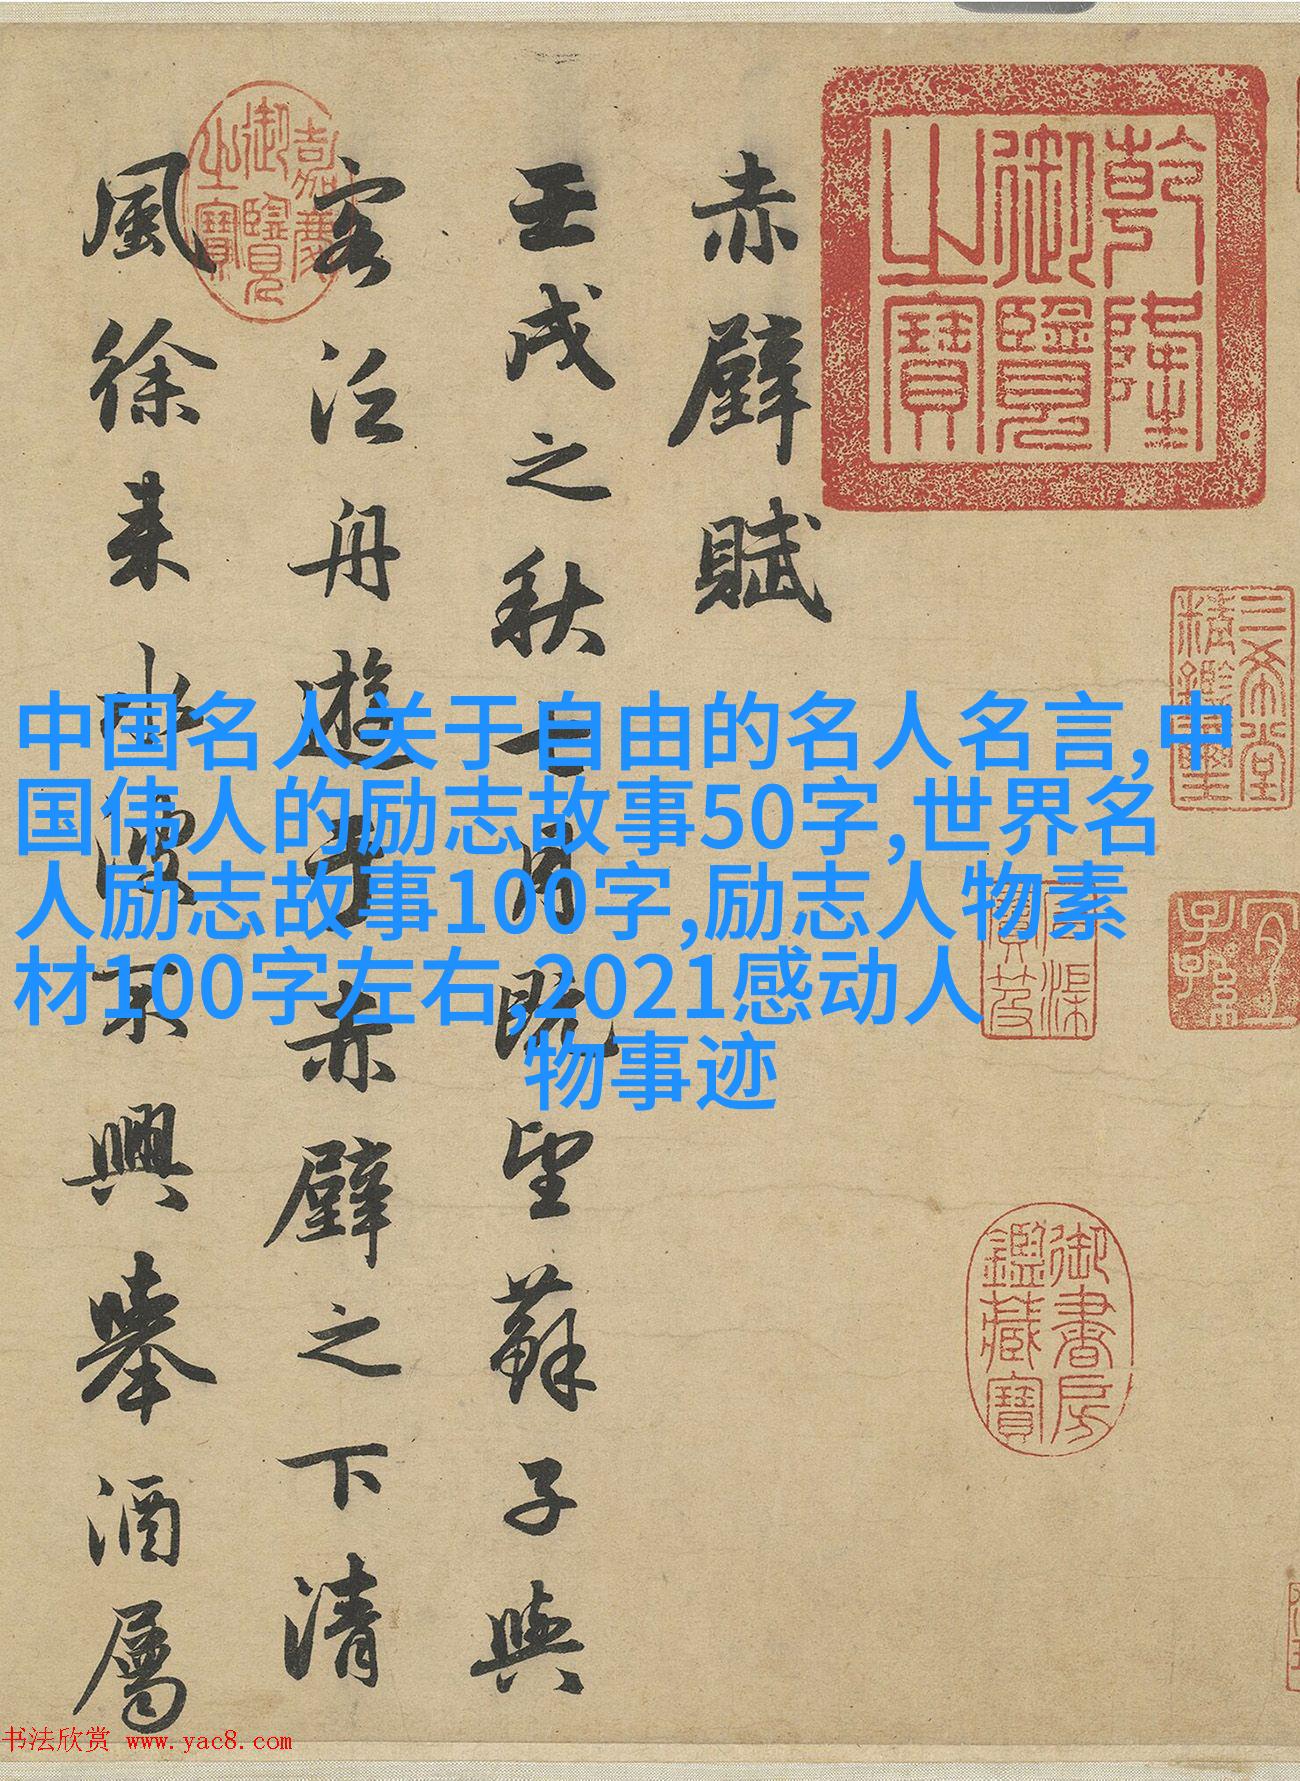 乾隆御覽之寶
三希堂精鑑璽
宜子孫
石渠寶笈
御書房鑑藏寶
赤壁賦
壬戌之秋七月既望蘇子與
客泛舟遊于赤壁之下清
風徐来水波不興舉酒屬
嘉慶御覽之寶
中国名人关于自由的名人名言,中
国伟人的励志故事50字,世界名
人励志故事100字,励志人物素
材100字左右,2021感动人
物事迹
书法欣赏 www.yac8.com